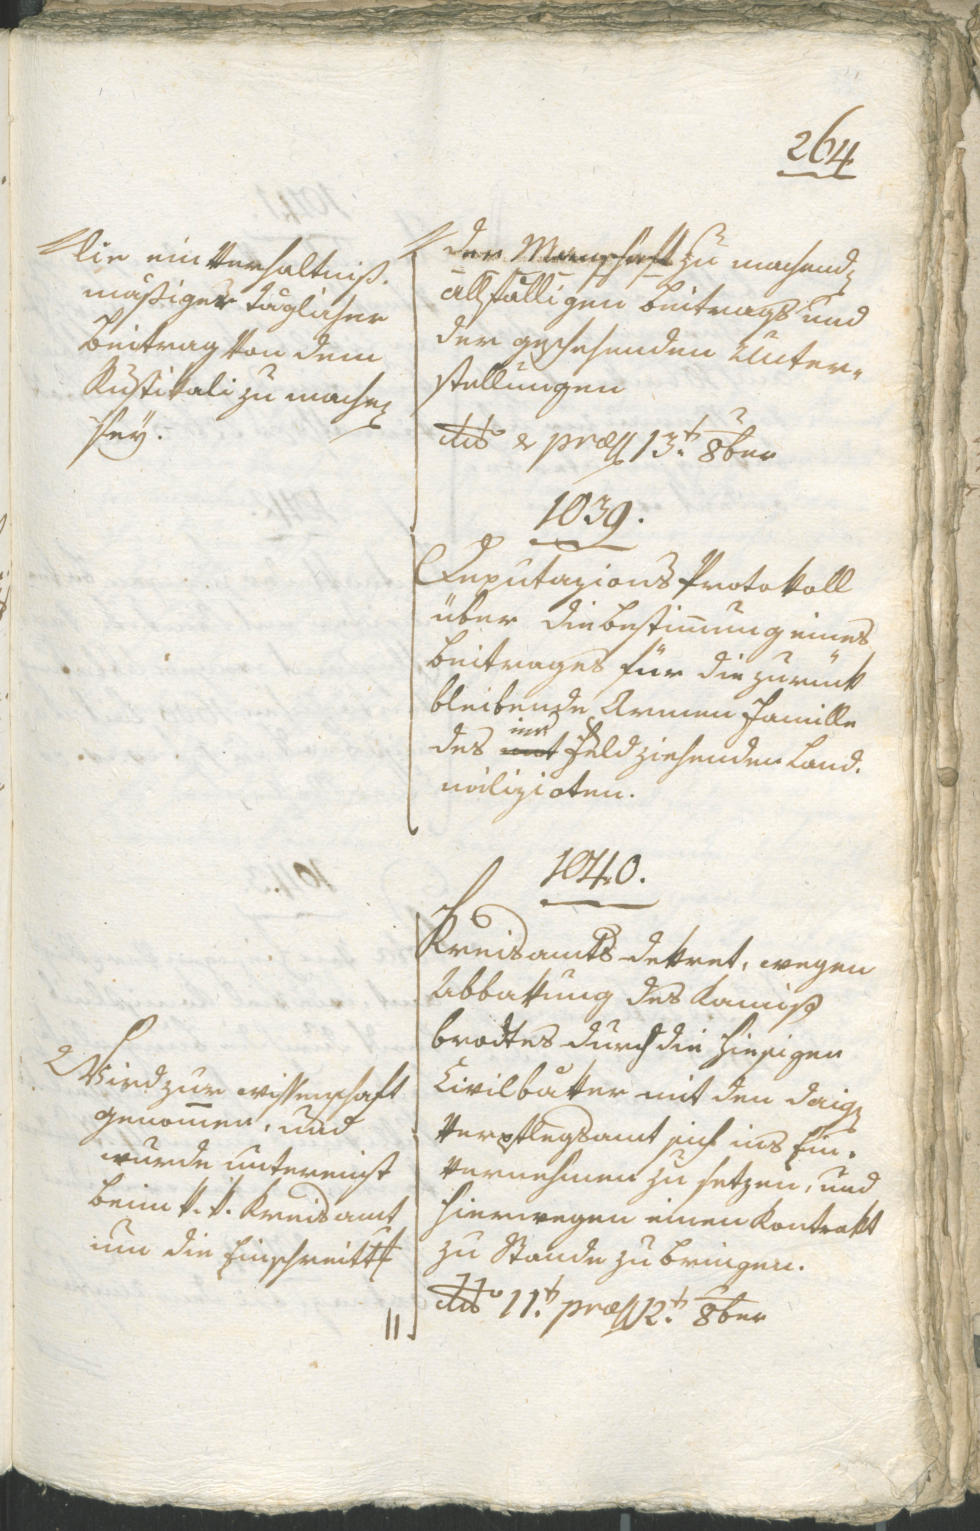 264
die ein Verhältniß-
mäßiger täglicher
Beitrag von dem
Rustikali zu machen
sey.
der Manschaft zu machend
allfälligen Beitrags und
der geschehenden Unter-
stellungen
dto & præs 13t 8ber
1039.
Deputazions Protokoll
über die Bestimung eines
Beitrages für die zurük
bleibende Armen Familie
des ins Feld ziehenden Land-
milizioten.
1040.
Kreisamts dekret, wegen
Abbakung des Kamiß
brodtes durch die hiesigen
Civilbäker mit den daig
Verpflegsamt sich ins Ein-
vernehmen zu setzen, und
hierwegen einen Kontrakt
zu Stande zu bringen.
dto 11t præs 12t 8ber
Wird zur wissenschaft
genomen, und
wurde untereinst
beim k. k. Kreisamt
um die Einschreitt